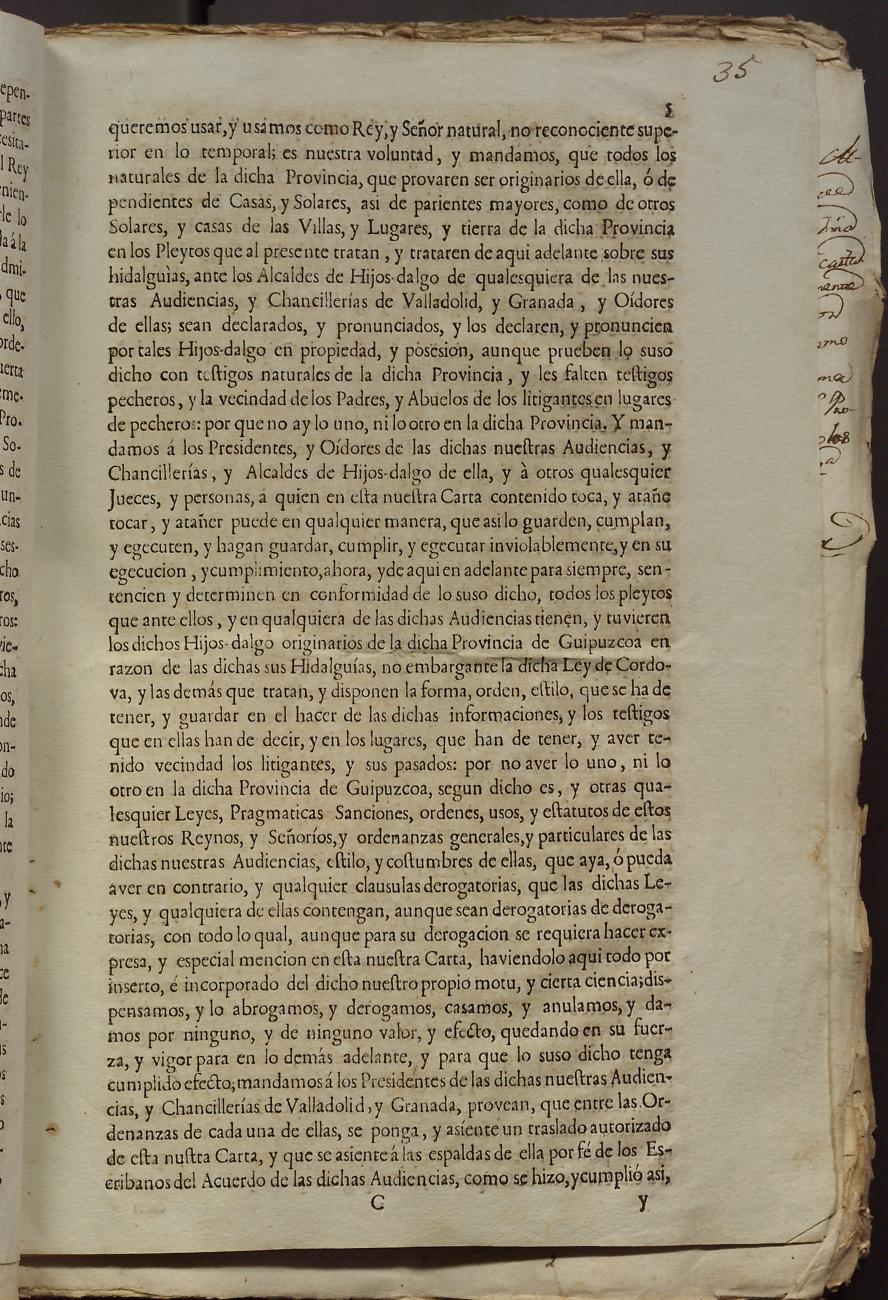 35
5
queremos usar, y usamos como Rey, y Señor natural, no reconociente supe-
rior en lo temporal; es nuestra voluntad, y mandamos, que todos los
naturales de la dicha Provincia, que provaren ser originarios de ella, ó de
pendientes de Casas, y Solares, asi de parientes mayores, como de otros
Solares, y casas de las Villas, y Lugares, y tierra de la dicha Provincia
en los Pleytos que al presente tratan, y trataren de aqui adelante sobre sus
hidalguìas, ante los Alcaldes de Hijos-dalgo de qualesquiera de las nues-
tras Audiencias, y Chancillerías de Valladolid, y Granada, y Oídores
de ellas; sean declarados, y pronunciados, y los declaren, y pronuncien
por tales Hijos-dalgo en propiedad, y posesion, aunque prueben lo suso
dicho con teſtigos naturales de la dicha Provincia, y les falten teſtigos
pecheros, y la vecindad de los Padres, y Abuelos de los litigantes en lugares
de pecheros: por que no ay lo uno, ni lo otro en la dicha Provincia. Y man-
damos á los Presidentes, y Oídores de las dichas nueſtras Audiencias, y
Chancillerías, y Alcaldes de Hijos-dalgo de ella, y à otros qualesquier
Jueces, y personas, á quien en eſta nueſtra Carta contenido toca, y atañe
tocar, y atañer puede en qualquier manera, que asi lo guarden, cumplan,
y egecuten, y hagan guardar, cumplir, y egecutar inviolablemente, y en su
egecucion, y cumplimiento, ahora, y de aqui en adelante para siempre, sen-
tencien y determinen en conformidad de lo suso dicho, todos los pleytos
que ante ellos, y en qualquiera de las dichas Audiencias tienen, y tuvieren
los dichos Hijos-dalgo originarios de la dicha Provincia de Guipuzcoa en
razon de las dichas sus Hidalguías, no embargante la dicha Ley de Cordo-
va, y las demás que tratan, y disponen la forma, orden, eſtilo, que se ha de
tener, y guardar en el hacer de las dichas informaciones, y los teſtigos
que en ellas han de decir, y en los lugares, que han de tener, y aver te-
nido vecindad los litigantes, y sus pasados: por no aver lo uno, ni lo
otro en la dicha Provincia de Guipuzcoa, segun dicho es, y otras qua-
lesquier Leyes, Pragmaticas Sanciones, ordenes, usos, y eſtatutos de eſtos
nueſtros Reynos, y Señoríos, y ordenanzas generales, y particulares de las
dichas nuestras Audiencias, eſtilo, y coſtumbres de ellas, que aya, ó pueda
aver en contrario, y qualquier clausulas derogatorias, que las dichas Le-
yes, y qualquiera de ellas contengan, aunque sean derogatorias de deroga-
torias, con todo lo qual, aunque para su derogacion se requiera hacer ex-
presa, y especial mencion en eſta nueſtra Carta, haviendolo aqui todo por
inserto, é incorporado del dicho nueſtro propio motu, y cierta ciencia; dis-
pensamos, y lo abrogamos, y derogamos, casamos, y anulamos, y da-
mos por ninguno, y de ninguno valor, y efecto, quedando en su fuer-
za, y vigor para en lo demás adelante, y para que lo suso dicho tenga
cumplido efecto; mandamos á los Presidentes de las dichas nueſtras Audien-
cias, y Chancillerías de Valladolid, y Granada, provean, que entre las Or-
denanzas de cada una de ellas, se ponga, y asiente un traslado autorizado
de eſta nuſtra Carta, y que se asiente á las espaldas de ella por fé de los Es-
cribanos del Acuerdo de las dichas Audiencias, como se hizo, y cumplió asi,
C y